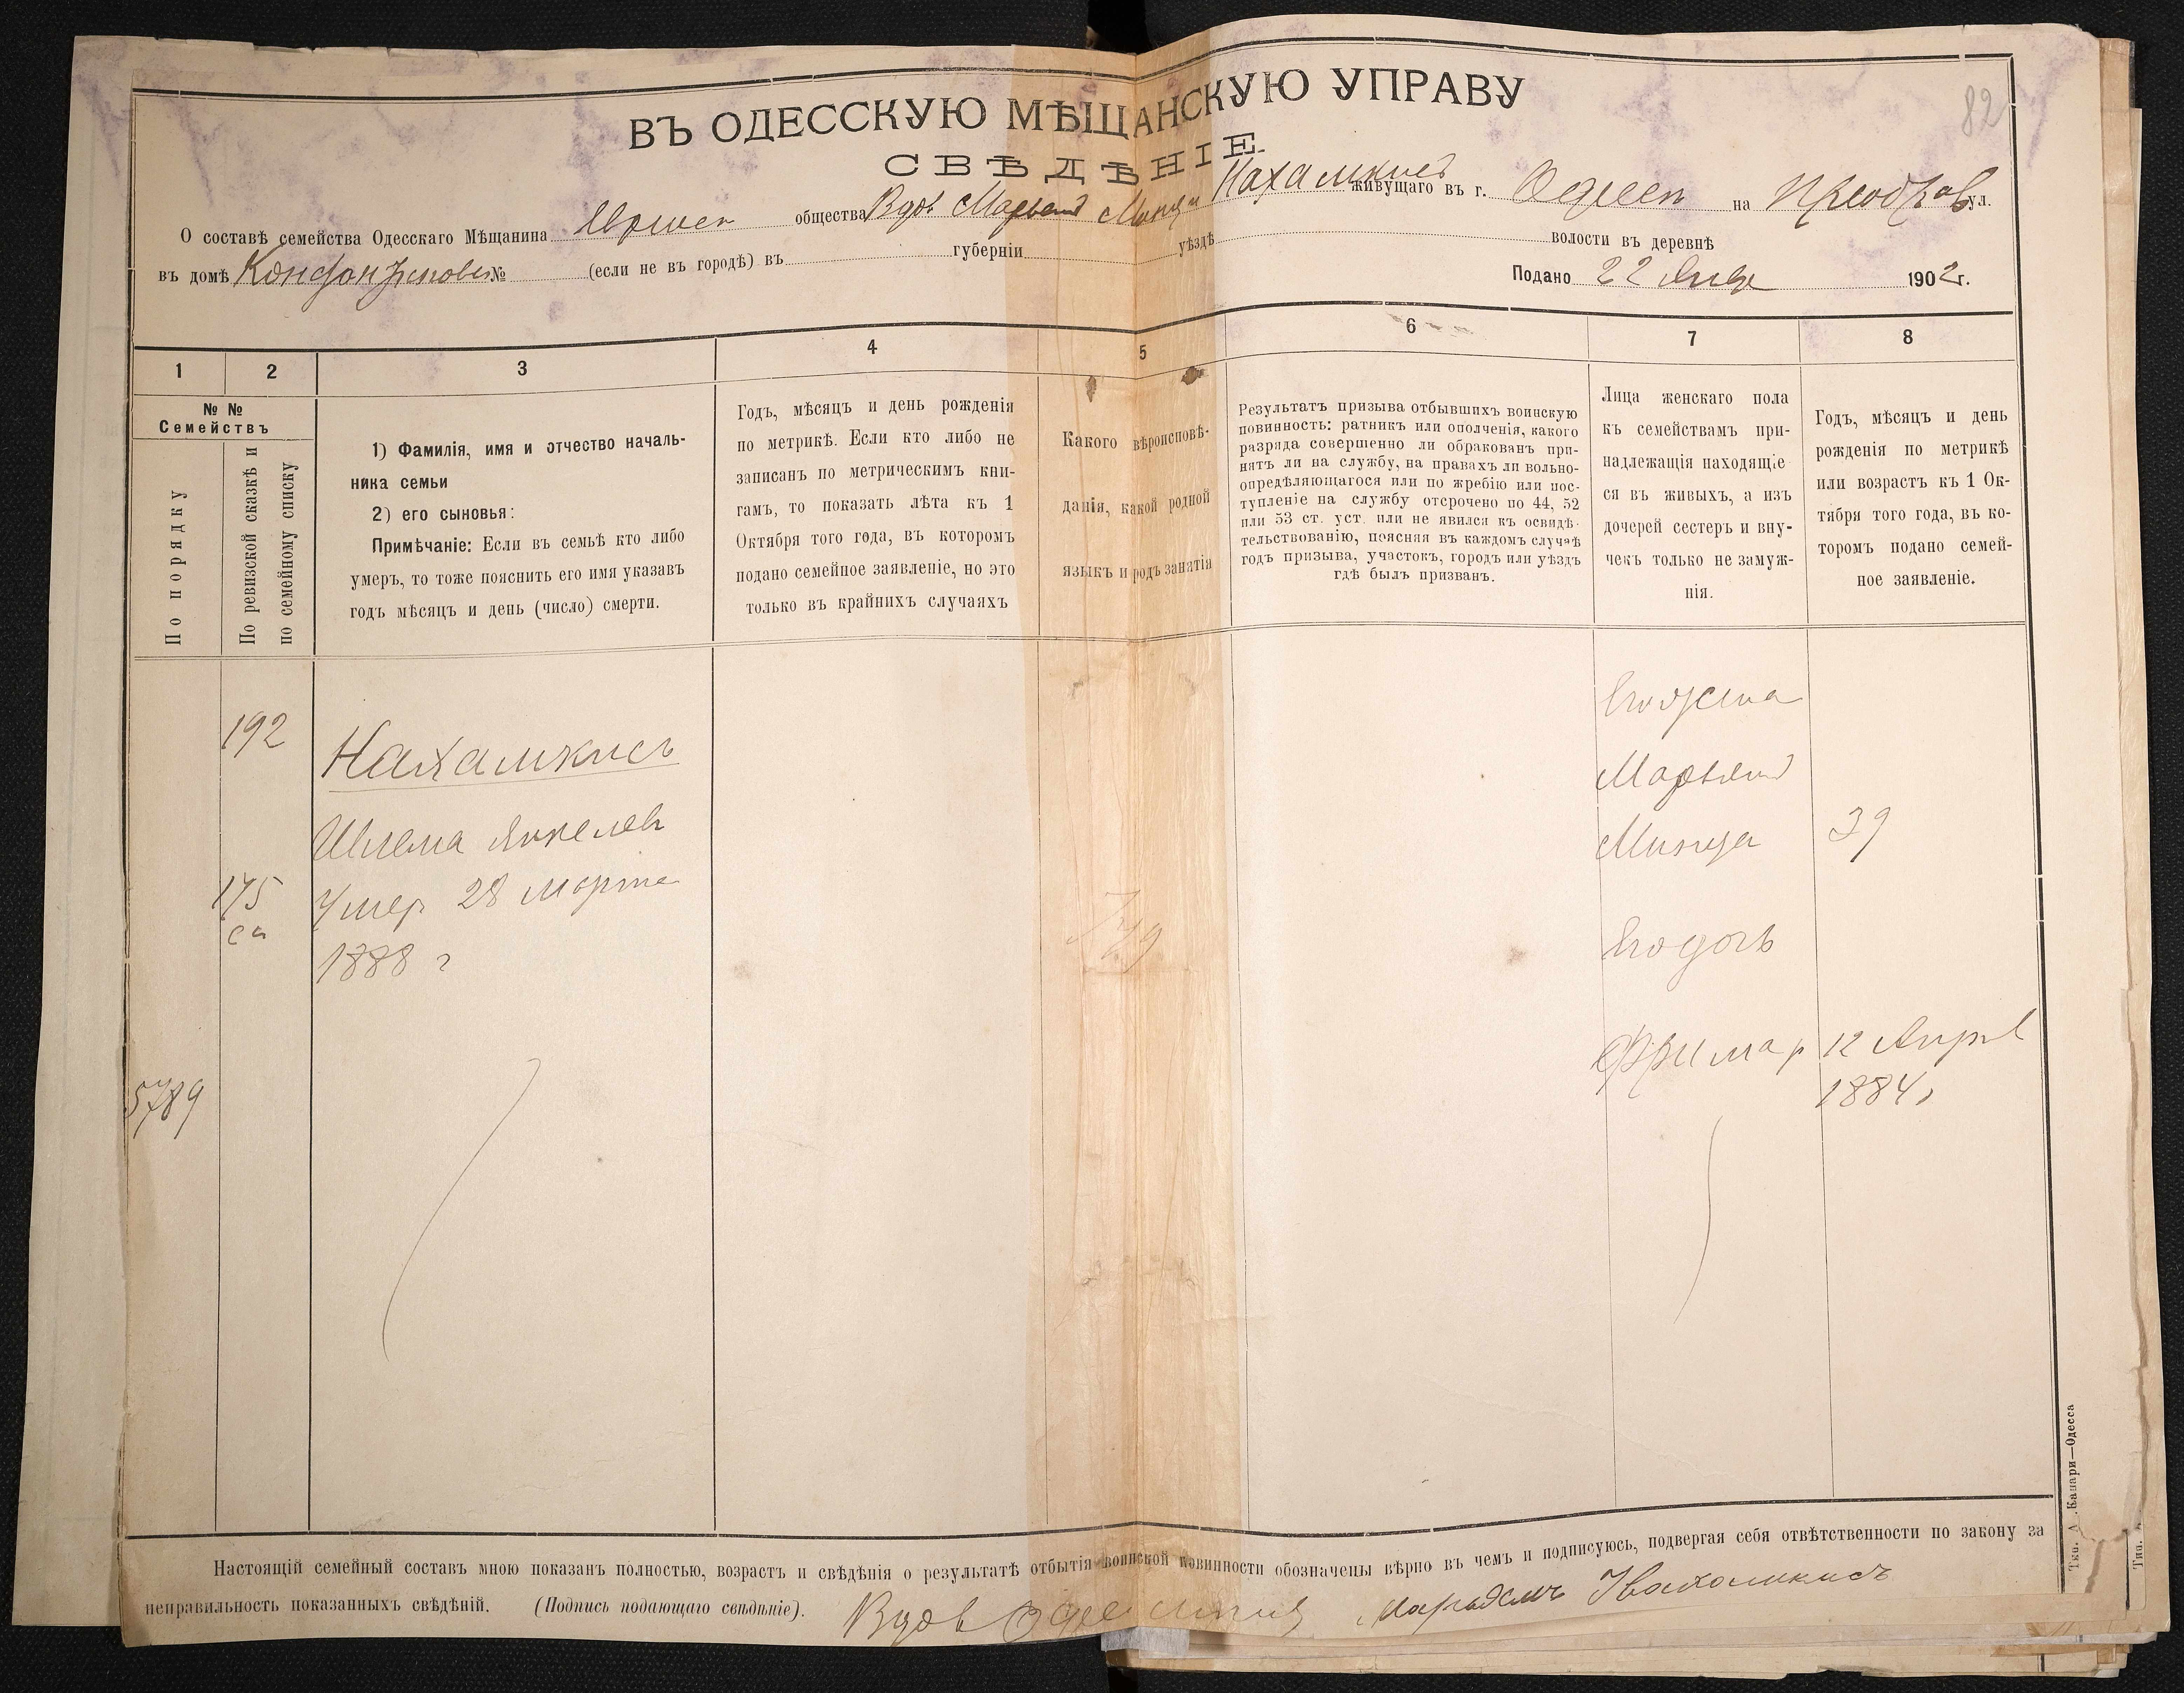 82
ВЪ ОДЕССКУЮ МѢЩАНСКУЮ УПРАВУ
СВѢДѢНІЕ
О составѣ семейства Одесскаго Мѣщанина Еврееск общества Вдов Марьям Минци Нахамкис живущаго въ г. Одессѣ на Преображ ул.
въ домѣ № (если не въ городѣ) въ губерніи уѣздѣ волости въ деревнѣ
Подано 22 Янв 1902 г.
1 2 3 4 5 6 7 8
№ №
Семействъ
По порядку
По ревизской сказкѣ и
по семейному списку
1) Фамилія, имя и отчество началь-
ника семьи
2) его сыновья:
Примѣчаніе: Если въ семьѣ кто либо
умеръ, то тоже пояснить его имя указавъ
годъ мѣсяцъ и день (число) смерти.
Годъ, мѣсяцъ и день рожденія
по метрикѣ. Если кто либо не
записанъ по метрическимъ кни-
гамъ, то показать лѣта къ 1
Октября того года, въ которомъ
подано семейное заявленіе, но это
только въ крайнихъ случаяхъ
Какого вѣроисповѣ-
данія, какой родной
языкъ и родъ занятія
Результатъ призыва отбывшихъ воинскую
повинность: ратникъ или ополченія, какого
разряда совершенно ли обракованъ при-
нятъ ли на службу, на правахъ ли вольно-
опредѣляющагося или по жребію или пос-
тупленіе на службу отсрочено по 44, 52
или 53 ст. уст. или не явился къ освидѣ-
тельствованію, поясняя въ каждомъ случаѣ
годъ призыва, участокъ, городъ или уѣздъ
гдѣ былъ призванъ.
Лица женскаго пола
къ семействамъ при-
надлежащія находящіе
ся въ живыхъ, а изъ
дочерей сестеръ и вну-
чекъ только не замуж-
нія.
Годъ, мѣсяцъ и день
рожденія по метрикѣ
или возрастъ къ 1 Ок-
тября того года, въ ко-
торомъ подано семей-
ное заявленіе.
192
Нахамкисъ
Шлема Янкелев
175
са
Умер 28 марта
1888 г
5789
Его жена
Марьям
Минця 39
Его дочь
Фримар 12 Апрел
1884 г
Настоящій семейный составъ мною показанъ полностью, возрастъ и свѣдѣнія о результатѣ отбытія воинской повинности обозначены вѣрно въ чемъ и подписуюсь, подвергая себя отвѣтственности по закону за
неправильность показанныхъ свѣдѣній. (Подпись подающаго свѣдѣніе). Вдов Марьямъ Нахамкисъ
Тип. А. Канари—Одесса